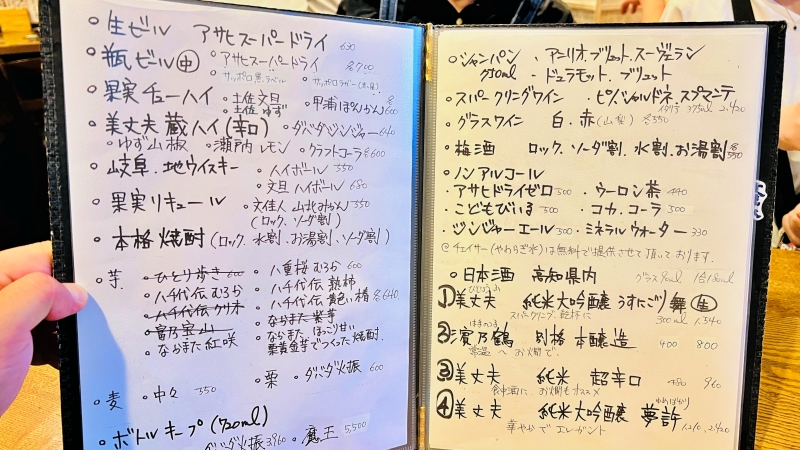 ○生ビール アサヒスーパードライ 630
○瓶ビール(中) ・アサヒスーパードライ 各700
・サッポロ黒ラベル ・サッポロラガー
○果実チューハイ ・土佐文旦 ・甲浦ぽんかん 各600
・土佐ゆず
○美丈夫 蔵ハイ(辛口) ・ダバダジンジャー 640
・ゆず山椒 ・瀬戸内レモン ・クラフトコーラ 各600
○岐阜.地ウイスキー ・ハイボール 550
・文旦ハイボール 680
○果実リキュール ・文佳人 山北みかん 550
(ロック、ソーダ割)
○本格焼酎(ロック、水割、お湯割、ソーダ割)
○芋 ・ひとり歩き 600 ・八重桜むろか 600
・八千代伝むろか ・八千代伝 熟柿
・八千代伝クリオ ・八千代伝 黄色い椿 各640
・富乃宝山 ・ならまた紫芋
・ならまた紅咲 ・ならまた ほっこり甘い
栗黄金芋でつくった焼酎.
○栗 ・ダバダ火振 600
○麦 ・中々 550
○ボトルキープ(720ml)
ダバダ火振 3,960 ・魔王 5,500
○シャンパン ・アンリオ.ブリュット.スーヴェラン
750ml ・ドゥラモット.ブリュット
○スパークリングワイン ・ピノ.シャルドネ.スプマンテ
375ml 2,420
○グラスワイン 白.赤(山梨)各550
○梅酒 ロック.ソーダ割.水割.お湯割 各550
○ノンアルコール
・アサヒドライゼロ 500 ・ウーロン茶 440
・こどもびいる 500 ・コカ.コーラ 500
・ジンジャーエール 500 ・ミネラルウォーター 330
@チェイサー(やわらぎ水)は無料で提供させて頂いております.
○日本酒 高知県内 グラス90ml 1合180ml
①美丈夫 純米大吟醸 うすにごり 舞 (生)
スパークリング.乾杯に 300ml 1,540
②濱乃鶴 別格 本醸造 400 800
常温へお燗で.
③美丈夫 純米 超辛口 480 960
食中酒に.お燗もオススメ
④美丈夫 純米大吟醸 夢許 1,210 2,420
華やかでエレガント